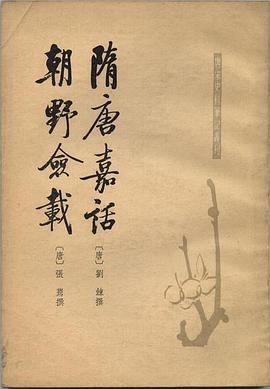 唐宋史料筆記叢刊
隋唐嘉話
〔唐〕劉餗撰
朝野僉載
〔唐〕張鷟撰